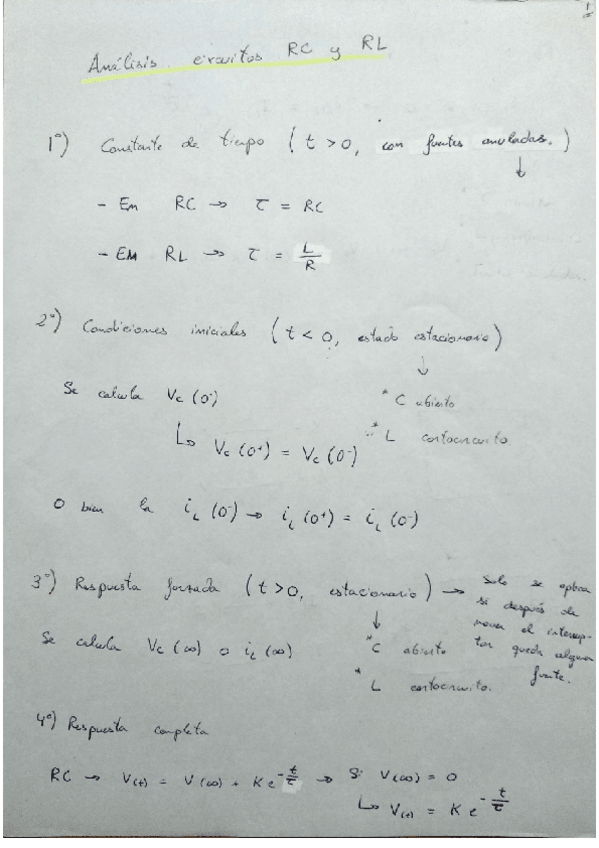 1
Análisis circuitos RC y RL
1º) Constante de tiempo (t > 0, con fuentes anuladas.)
↓
- En RC → τ = RC
- EN RL → τ = L/R
2º) Condiciones iniciales (t < 0, estado estacionario)
↓
Se calcula Vc (0⁻)
* C abierto
↳ Vc (0⁺) = Vc (0⁻)
* L cortocircuito
O bien la i_L (0⁻) → i_L (0⁺) = i_L (0⁻)
3º) Respuesta forzada (t>0, estacionario) → Solo se aplica
si después de
mover el interrup-
tor queda alguna
fuente.
↓
Se calcula Vc (∞) o i_L (∞)
* C abierto
* L cortocircuito.
4º) Respuesta completa
RC → V(t) = V(∞) + K e^(-t/τ) → Si V(∞) = 0
↳ V(t) = K e^(-t/τ)